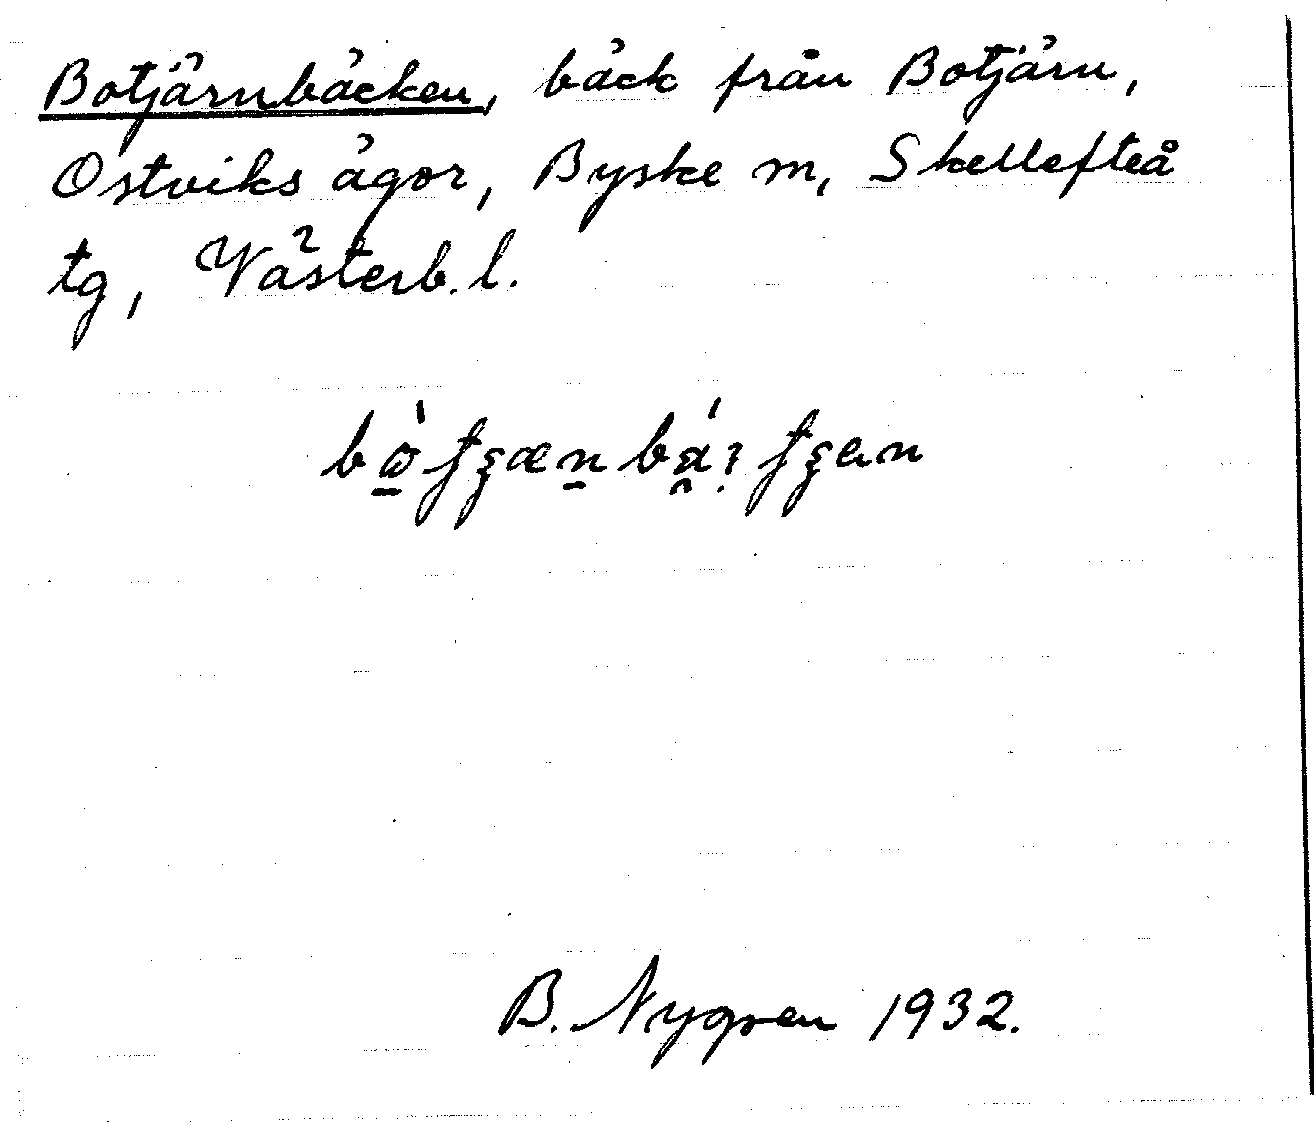 Botjärnbäcken, bäck från Botjärn,
Ostviks ägor, Byske m, Skellefteå
tg, Västerb. l.
B. Nygren 1932.